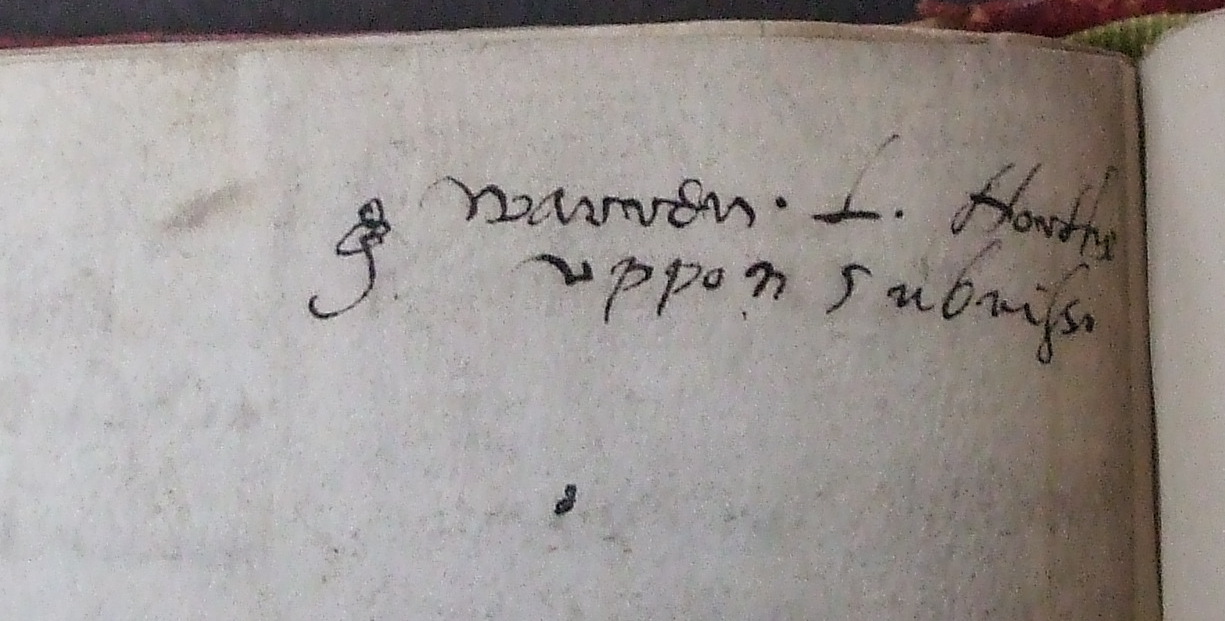 warren · L. Howths
uppon submiss